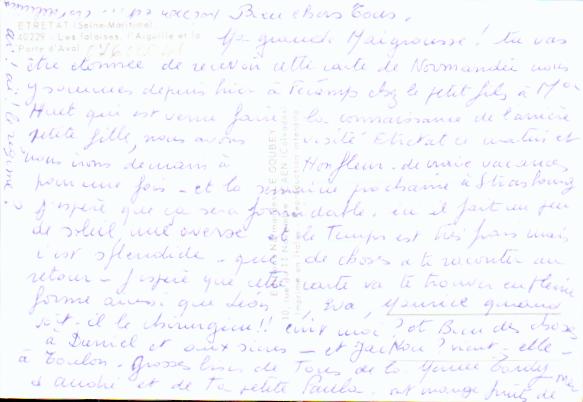 Bien chers Tous.
ETRETAT (Seine-Maritime)
40229 - Les falaises, l'Aiguille et la
Porte d'Aval
Ma grande Maigrousse! tu vas
être étonnée de recevoir cette carte de Normandie nous
y sommes depuis hier à Fécamp chez le petit fils à Mr
Huet qui est venu faire la connaissance de l'arrière
petite fille, nous avons visité Etretat ce matin et
nous irons demain à Honfleur - de vraies vacances
pour une fois - et la semaine prochaine à Strasbourg
j'espère que ça sera formidable. ici il fait un peu
de soleil, une averse et le Temps est très frais mais
c'est splendide - que de choses à te raconter au
retour - J'espère que cette carte va te trouver en pleine
forme ainsi que
Maurice quand
le chirurgien!! et Bien des choses
à Daniel et aux siens - et elle
à Toulon. Grosses bises de Tous de la
à André et de Ta petite Paula. mangé fruits de